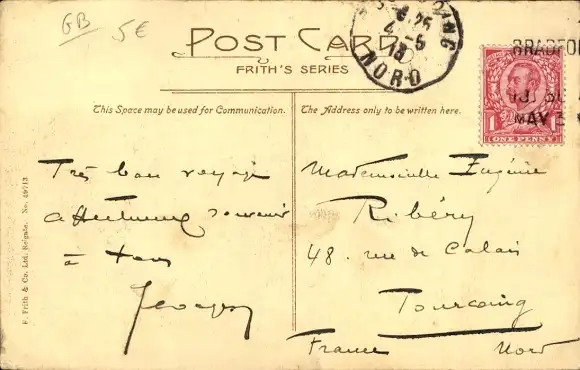 GB 5€
POST CARD
FRITH'S SERIES
This Space may be used for Communication.
The Address only to be written here.
NORD
BRADFOR
MAY
ONE PENNY
F. Frith & Co. Ltd. Reigate. No. 49713
Très bon voyage
affectueux souvenir
à tous
Georges
Mademoiselle Eugénie
Ribéry
48. rue de Calais
Tourcoing
France Nord